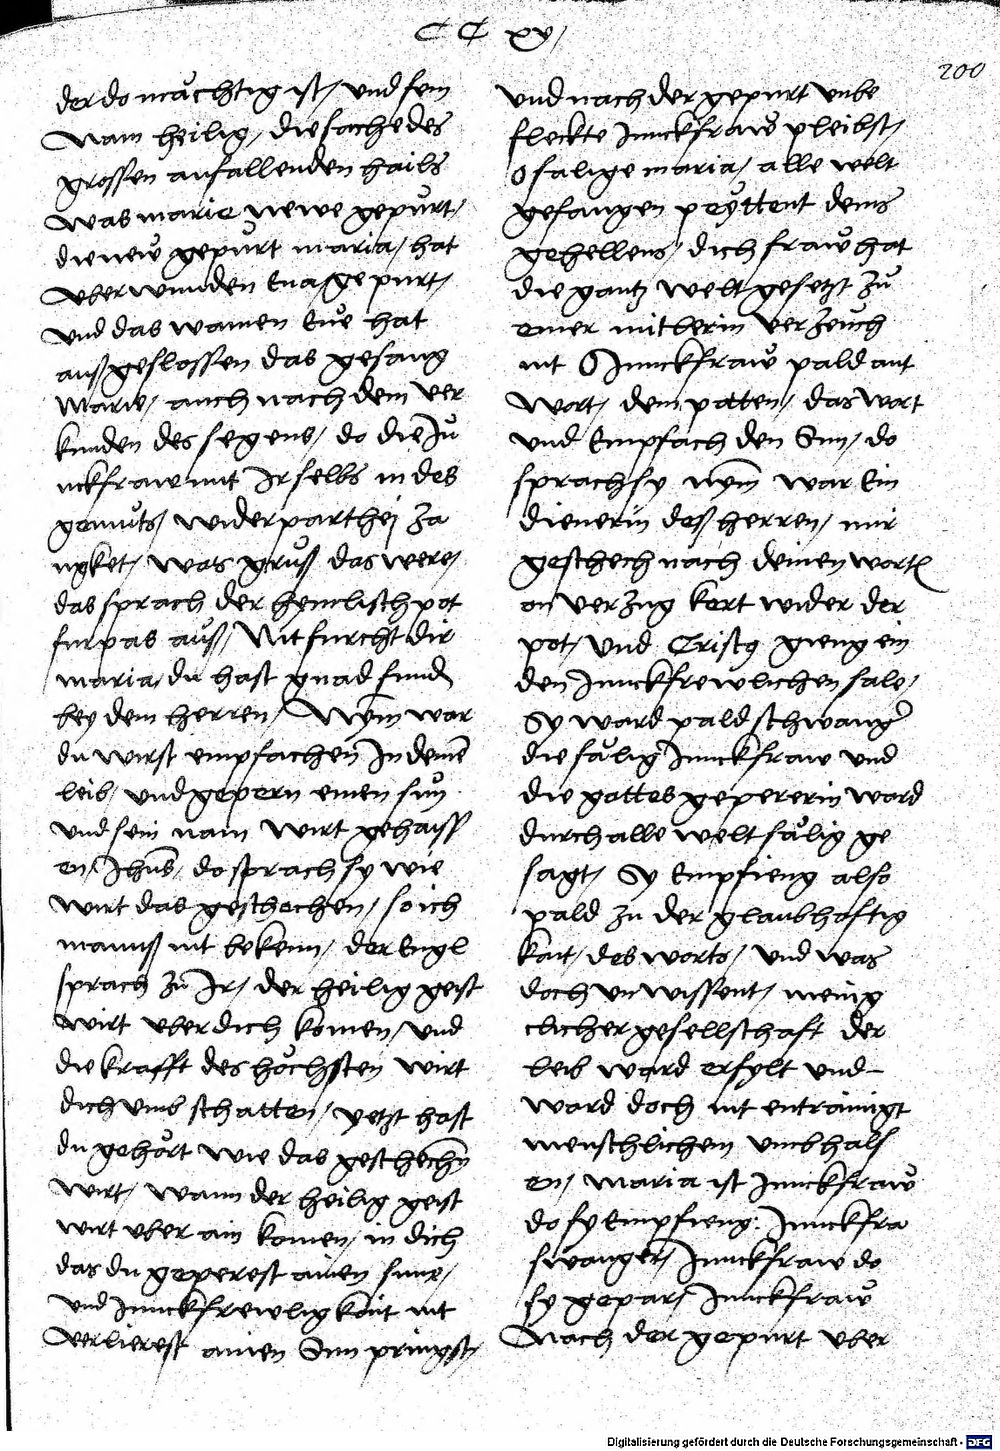 CC xv/
200
der do mächtig ist/ und sein
Nam heilig/ die sache des
grossen anfallenden hails
was marie newe gepurt/
die new gepurt maria/ hat
uberwunden Eua gepurt/
und das wainen Eue hat
außgeslossen das gesang
Marie/ auch nach dem ver
kunden des segens/ do die Ju
nckfraw mit Ir selbs in des
gemuts/ widerparthej za
ngket/ was gruß das were/
das sprach der hymlisch pot
furpas auß/ Nit furcht dir
maria/ du hast gnad fund
bey dem herren/ Nym war
du wirst empfachen In deine
leib/ und gepern einen sun
und sein nam wirt gehaiss
en/ Jhus/ do sprach sy wie
wirt das geschechen/ so ich
mannß nit bekenn/ der Engl
sprach zu Ir/ der heilig geist
wirt uber dich komen/ und
die krafft des höchsten wirt
dich umb schatten/ yetzt hast
du gehört wie das geschechn
wirt/ wann der heilig geist
wirt uber ain komen/ in dich
das du geperest ainen sune/
und Junckfrewligkait nit
verlierest ainen Sun pringst/
und nach der gepurt unbe
fleckte Junckfraw pleibst/
O salige maria/ alle welt
gefangen peyttent deins
gehellens/ dich fraw hat
die gantz welt gesetzt zu
einer mitlerin verzeuch
nit O Junckfraw pald ant
wort/ dem potten/ das wort
und Empfach den Sun/ do
sprach sy nym war Ein
dienerin deß herren/ mir
geschech nach deinen wort
on verzug kert wider der
pot/ und Cristus gieng ein
den Junckfrewlichen sale/
Sy ward pald schwang
die sälig Junckfraw und
die gottes gepererin ward
durch alle welt sälig ge
sagt/ Sy Empfieng also
pald zu der glaubhaftig
kait/ des worts/ und was
doch unwissent/ menig
clicher gesellschaft der
leib ward erfylt und
ward doch nit entrainigt
menschlichem umbhals
en/ maria ist Junckfraw
do sy Empfieng: Junckfra
swanger/ Junckfraw do
sy gepar/ Junckfraw
Nach der gepurt uber
Digitalisierung gefördert durch die Deutsche Forschungsgemeinschaft - DFG